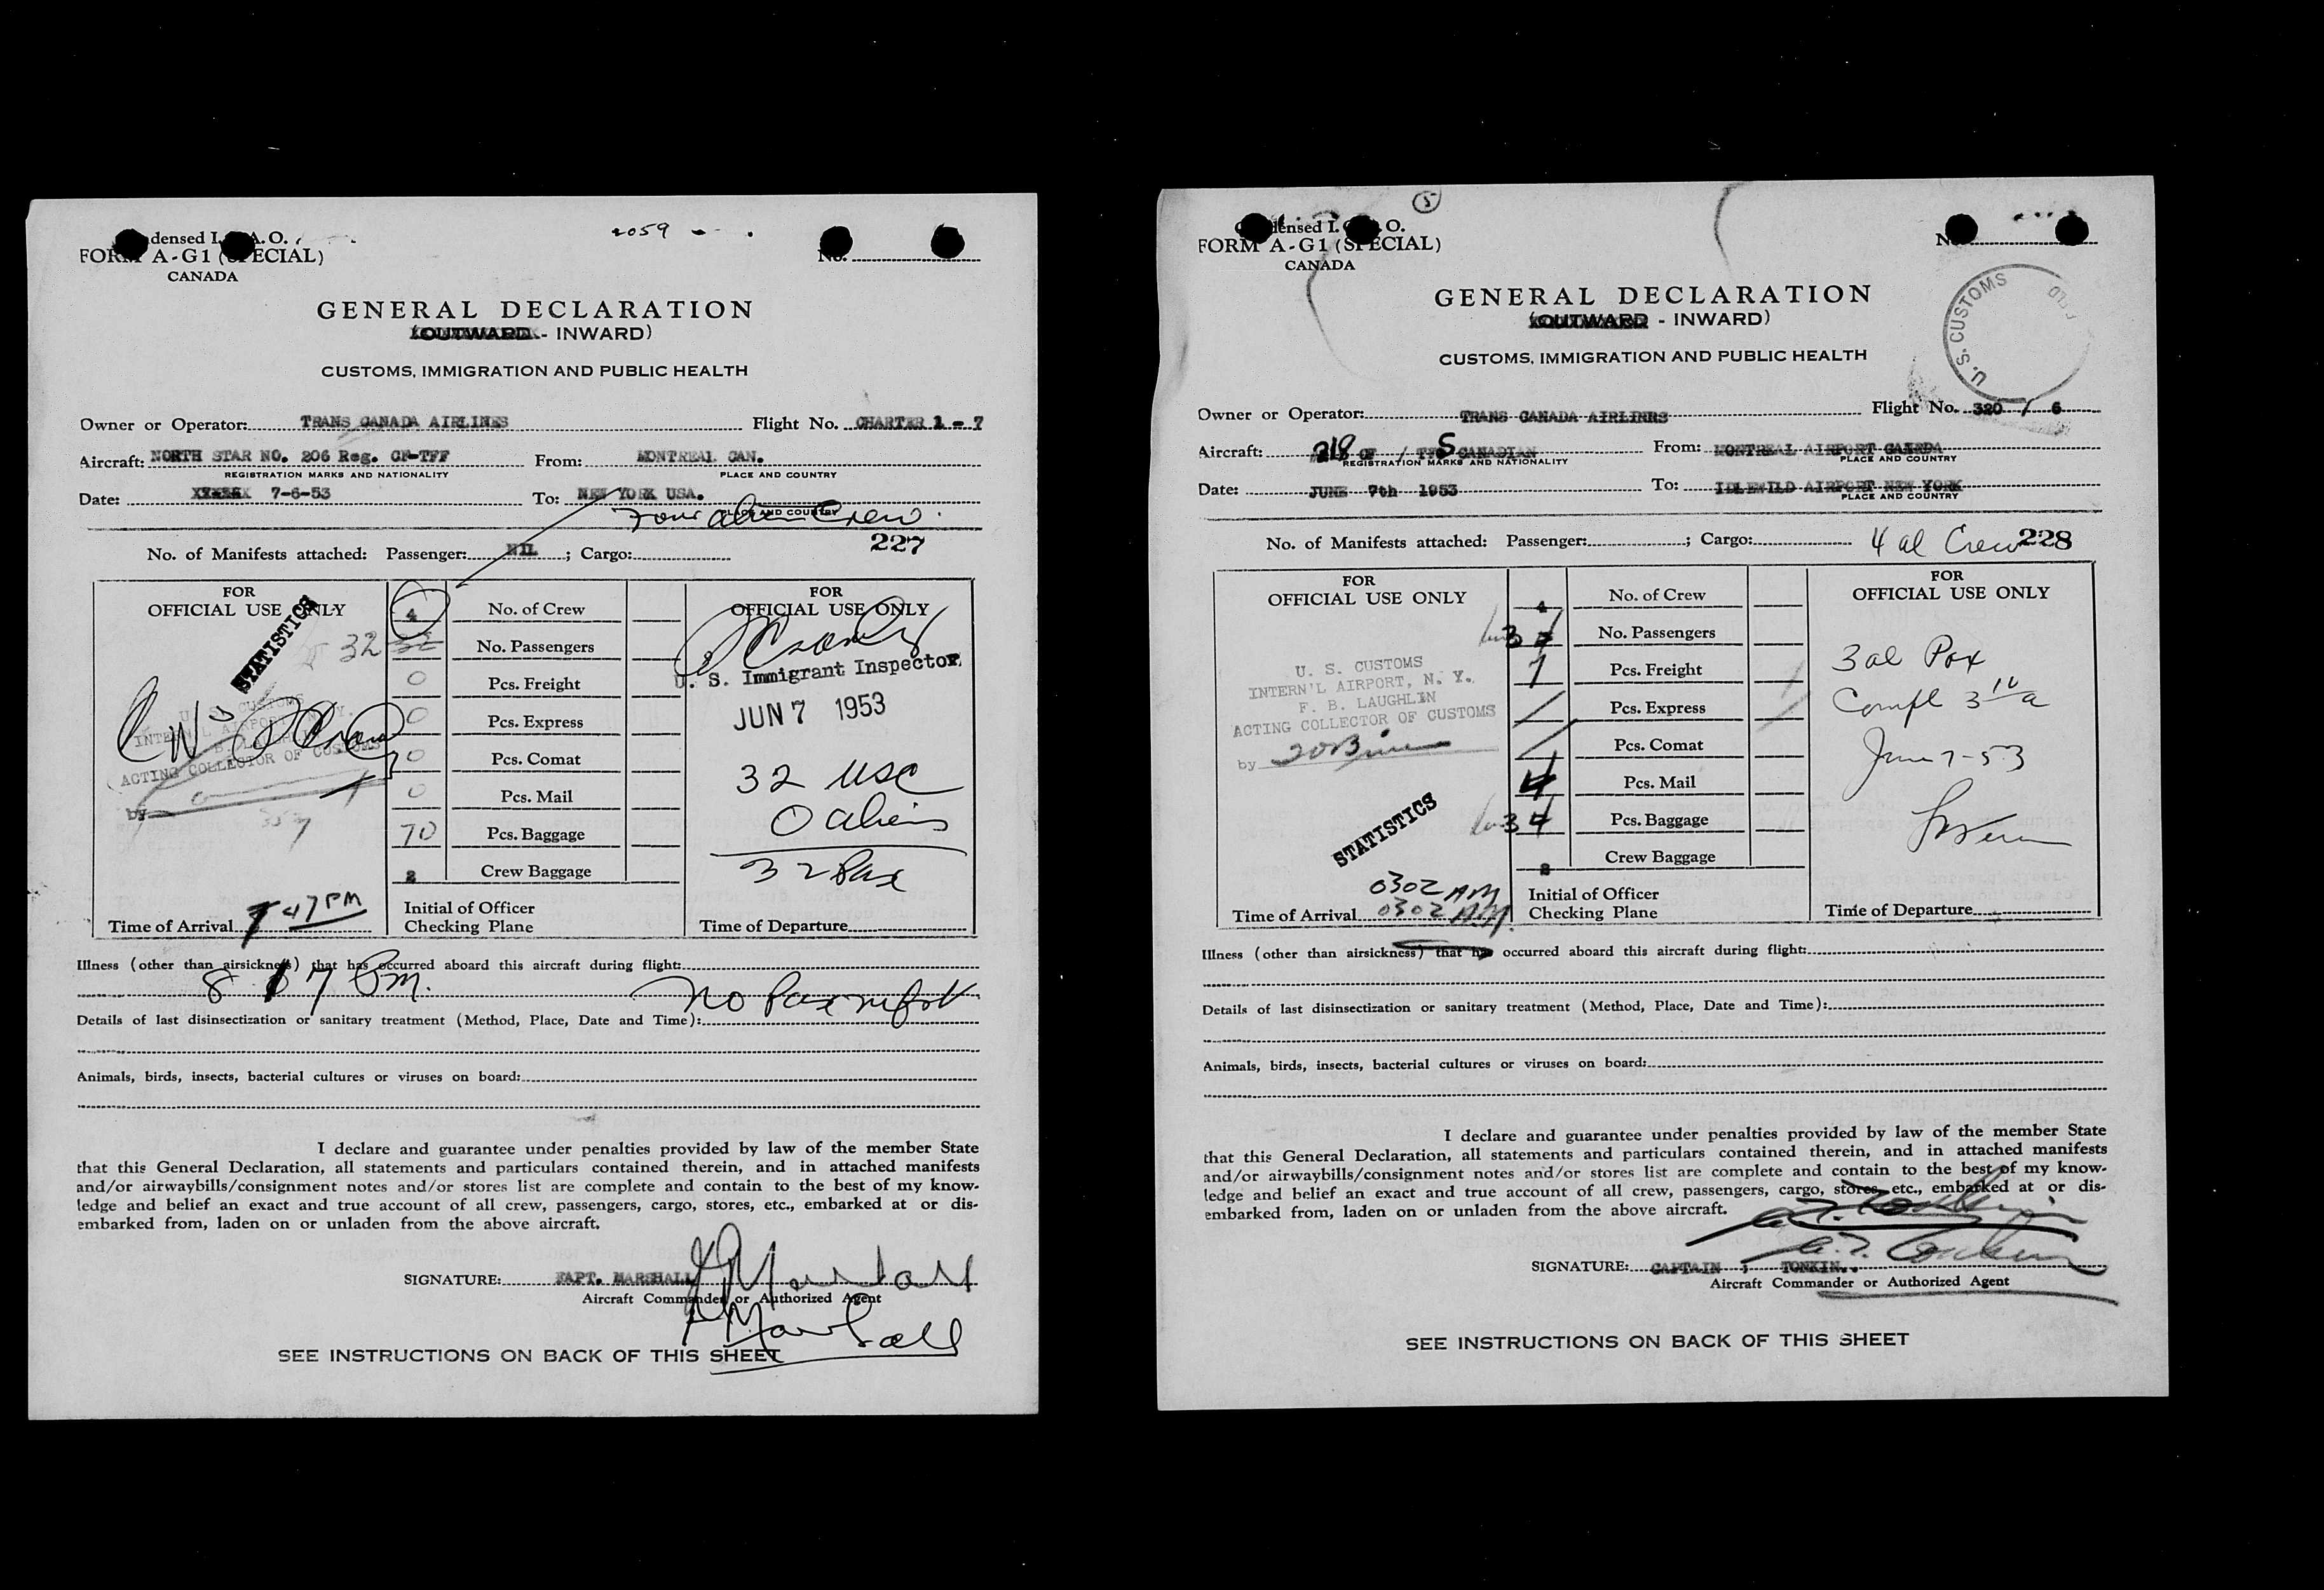 2059
FORM A-G1 (SPECIAL)
CANADA
No.
GENERAL DECLARATION
(OUTWARD - INWARD)
CUSTOMS, IMMIGRATION AND PUBLIC HEALTH
Owner or Operator: TRANS CANADA AIRLINES Flight No. CHARTER 1 - 7
Aircraft: NORTH STAR NO. 206 Reg. CF-TFF From: MONTREAL CAN.
REGISTRATION MARKS AND NATIONALITY PLACE AND COUNTRY
Date: 7-6-53 To: NEW YORK USA.
PLACE AND COUNTRY
Four alien Crew
227
No. of Manifests attached: Passenger: NIL ; Cargo:
FOR
OFFICIAL USE ONLY
STATISTICS
U. S. CUSTOMS
INTERN'L AIRPORT, N. Y.
F. B. LAUGHLIN
ACTING COLLECTOR OF CUSTOMS
by
Time of Arrival 7 47 PM
4 No. of Crew
32 32 No. Passengers
0 Pcs. Freight
0 Pcs. Express
0 Pcs. Comat
0 Pcs. Mail
70 Pcs. Baggage
2 Crew Baggage
Initial of Officer
Checking Plane
FOR
OFFICIAL USE ONLY
U. S. Immigrant Inspector
JUN 7 1953
32 USC
0 aliens
32 Pax
Time of Departure
Illness (other than airsickness) that has occurred aboard this aircraft during flight:
8 17 Pm.
Details of last disinsectization or sanitary treatment (Method, Place, Date and Time):
Animals, birds, insects, bacterial cultures or viruses on board:
I declare and guarantee under penalties provided by law of the member State
that this General Declaration, all statements and particulars contained therein, and in attached manifests
and/or airwaybills/consignment notes and/or stores list are complete and contain to the best of my know-
ledge and belief an exact and true account of all crew, passengers, cargo, stores, etc., embarked at or dis-
embarked from, laden on or unladen from the above aircraft.
SIGNATURE: FAPT. MARSHALL Marshall
Aircraft Commander or Authorized Agent
Marshall
SEE INSTRUCTIONS ON BACK OF THIS SHEET
5
FORM A-G1 (SPECIAL)
CANADA
GENERAL DECLARATION
(OUTWARD - INWARD)
U. S. CUSTOMS
CUSTOMS, IMMIGRATION AND PUBLIC HEALTH
Owner or Operator: TRANS CANADA AIRLINRS Flight No. 320 / 6
Aircraft: 218 CF / TFS CANADIAN From: MONTREAL AIRPORT CANADA
REGISTRATION MARKS AND NATIONALITY PLACE AND COUNTRY
Date: JUNE 7th 1953 To: IDLEWILD AIRPORT NEW YORK
PLACE AND COUNTRY
No. of Manifests attached: Passenger: ; Cargo: 4 al Crew 228
FOR
OFFICIAL USE ONLY
U. S. CUSTOMS
INTERN'L AIRPORT, N. Y.
F. B. LAUGHLIN
ACTING COLLECTOR OF CUSTOMS
by
STATISTICS
0302 AM
Time of Arrival 0302 AM
4 No. of Crew
No. Passengers
1 Pcs. Freight
/ Pcs. Express
/ Pcs. Comat
4 Pcs. Mail
34 Pcs. Baggage
2 Crew Baggage
Initial of Officer
Checking Plane
FOR
OFFICIAL USE ONLY
3 al Pax
Compl 3 10 a
June 7-53
Time of Departure
Illness (other than airsickness) that has occurred aboard this aircraft during flight:
Details of last disinsectization or sanitary treatment (Method, Place, Date and Time):
Animals, birds, insects, bacterial cultures or viruses on board:
I declare and guarantee under penalties provided by law of the member State
that this General Declaration, all statements and particulars contained therein, and in attached manifests
and/or airwaybills/consignment notes and/or stores list are complete and contain to the best of my know-
ledge and belief an exact and true account of all crew, passengers, cargo, stores, etc., embarked at or dis-
embarked from, laden on or unladen from the above aircraft.
SIGNATURE: CAPTAIN ; TONKIN..
Aircraft Commander or Authorized Agent
SEE INSTRUCTIONS ON BACK OF THIS SHEET